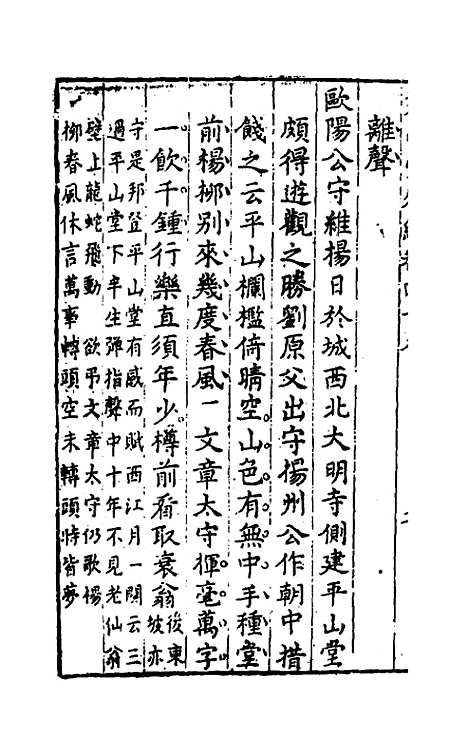 離聲
歐陽公守維揚日於城西北大明寺側建平山堂
頗得遊觀之勝劉原父出守揚州公作朝中措
餞之云平山欄檻倚晴空山色有無中手種堂
前楊柳別來幾度春風一文章太守揮毫萬字
一飲千鍾行樂直須年少樽前看取衰翁後東坡亦
守是邦登平山堂有感而賦西江月一闋云三
過平山堂下半生彈指聲中十年不見老仙翁
壁上龍蛇飛動 欲弔文章太守仍歌楊
柳春風休言萬事轉頭空未轉頭時皆夢